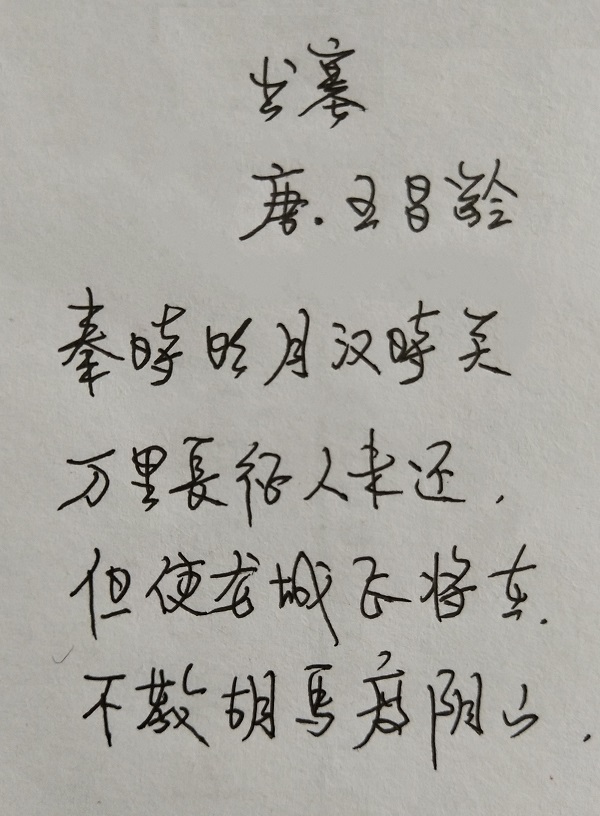 出塞
唐.王昌龄
秦時明月汉時关
万里長征人未还.
但使龙城飞将在.
不教胡马度阴山.